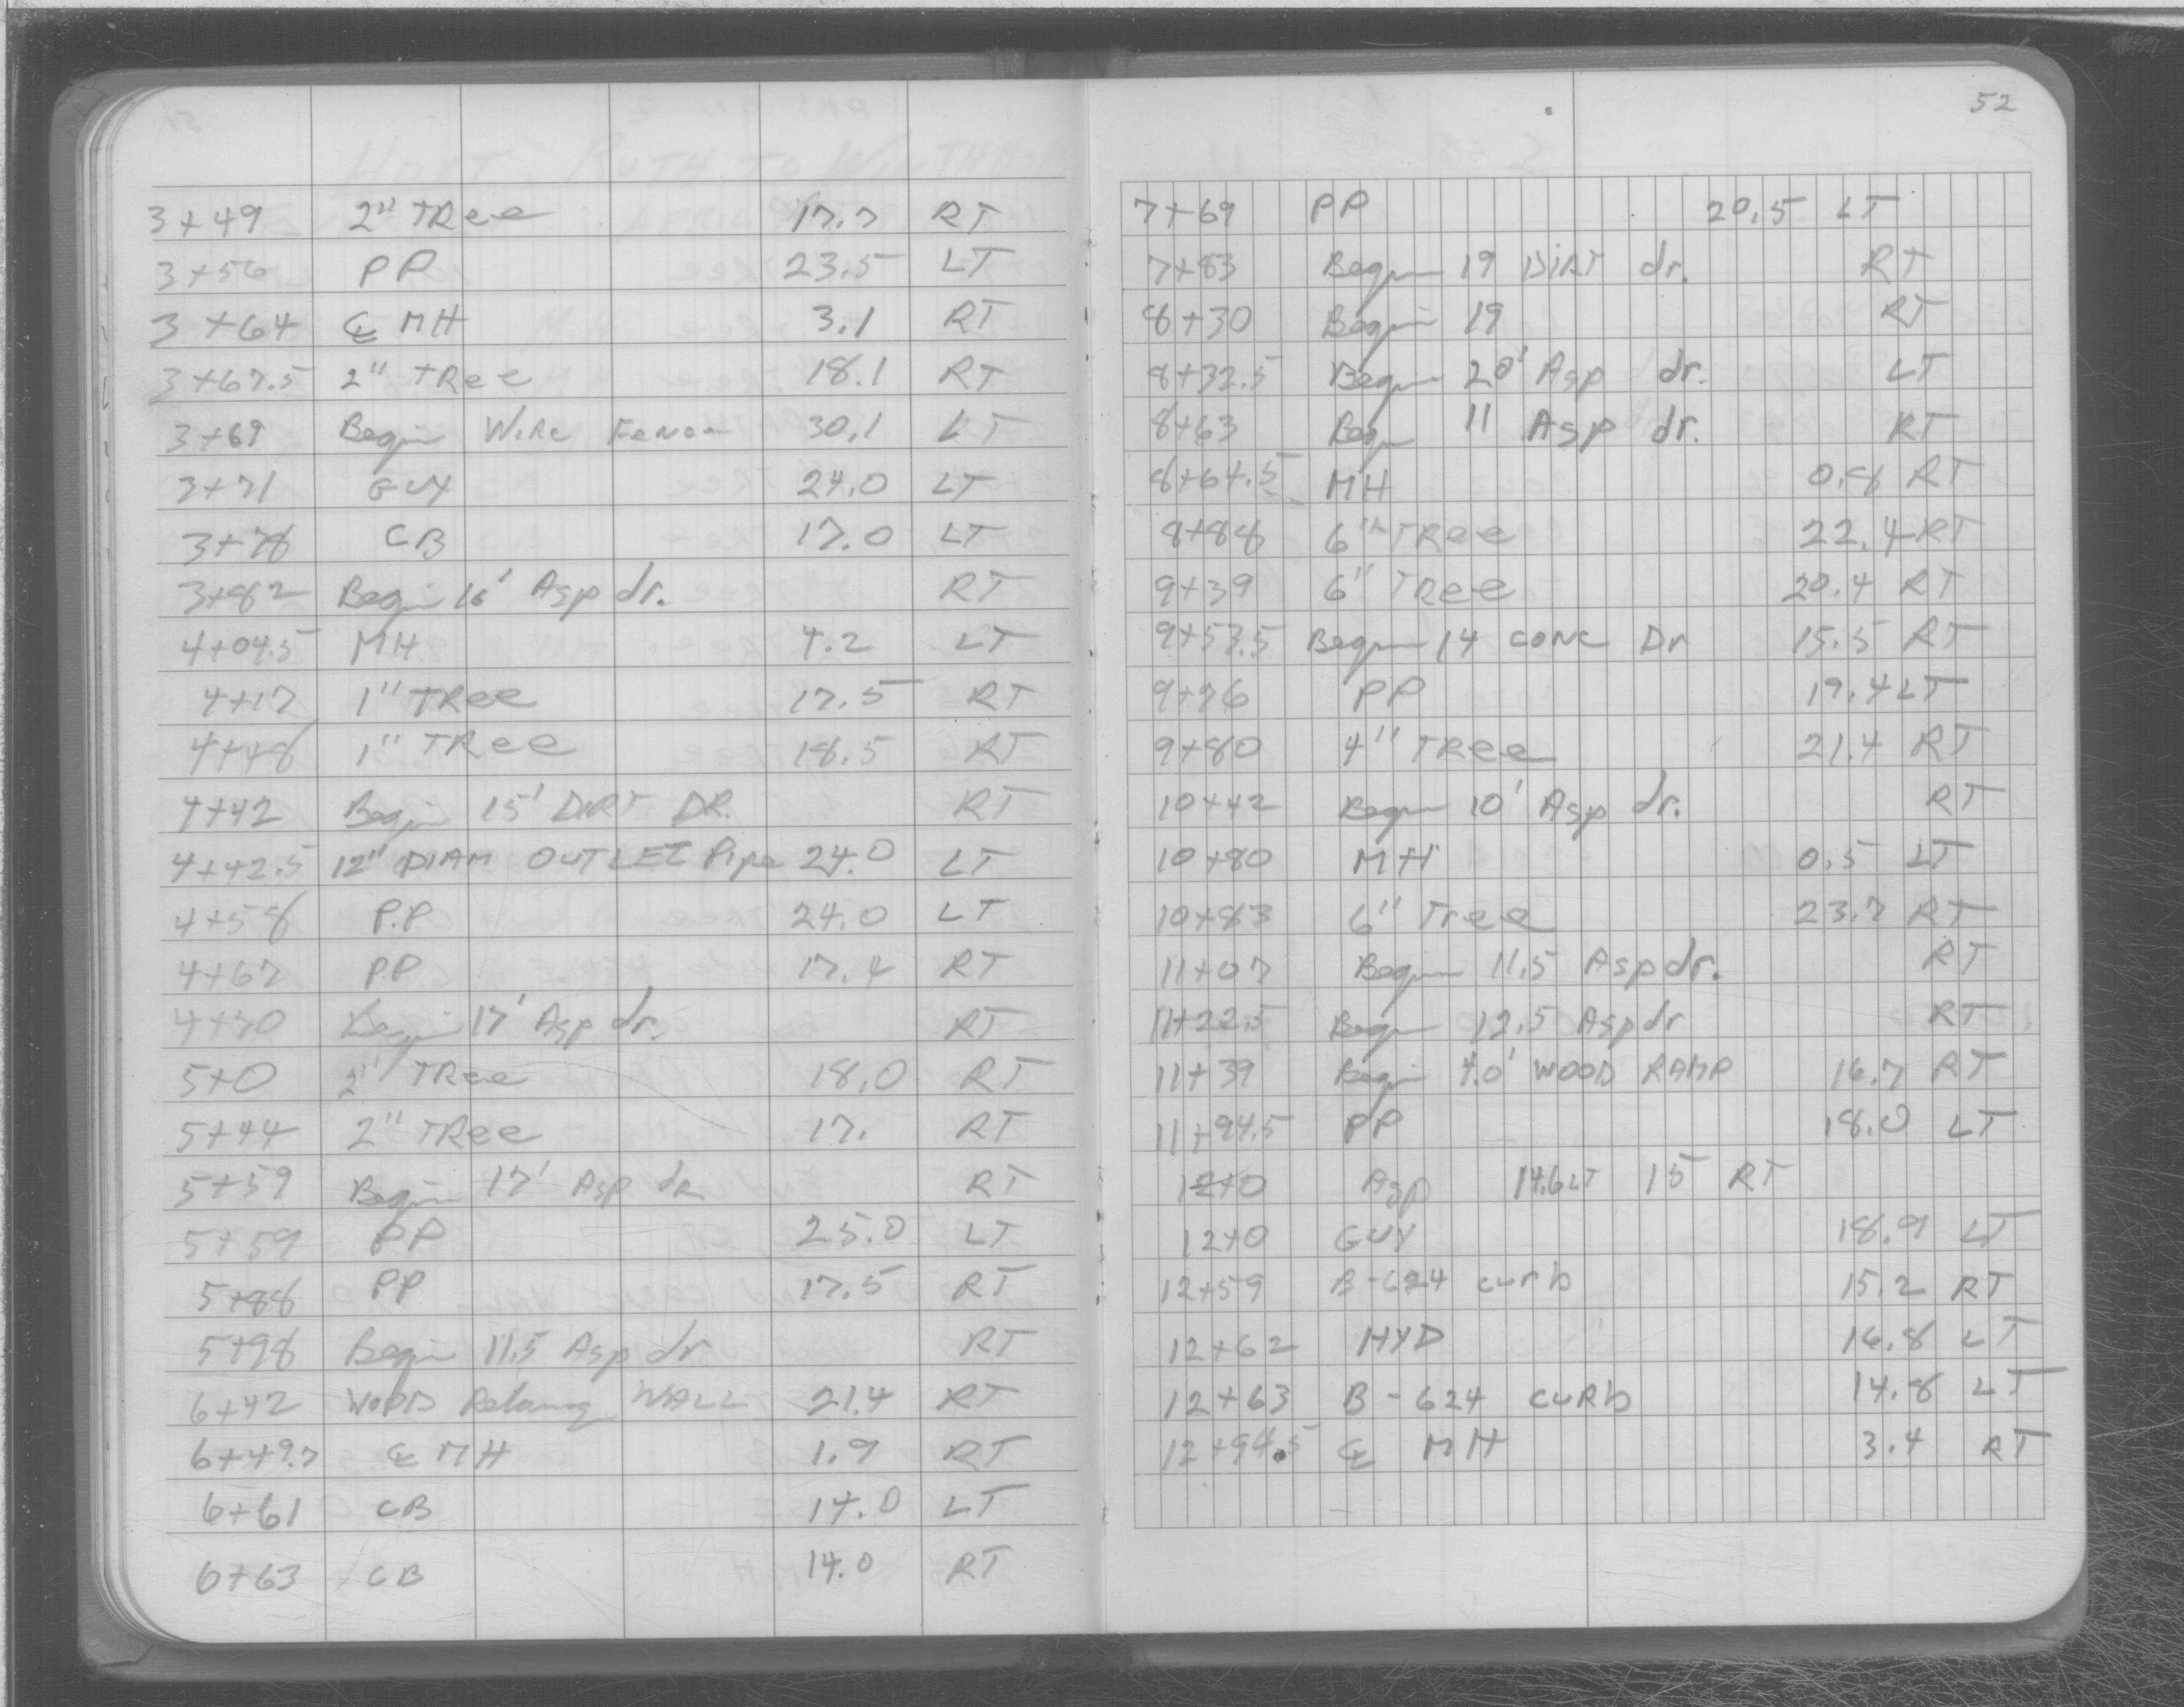 3+49 2" TRee 17.7 RT
3+56 PP 23.5 LT
3+64 ℄ MH 3.1 RT
3+67.5 2" TRee 18.1 RT
3+69 Begin Wire Fence 30.1 LT
3+71 GUY 24.0 LT
3+78 CB 17.0 LT
3+82 Begin 16' Asp dr. RT
4+04.5 MH 4.2 LT
4+17 1" TRee 17.5 RT
4+48 1" TRee 18.5 RT
4+42 Begin 15' DIRT DR. RT
4+42.5 12" DIAM OUTLET Pipe 24.0 LT
4+58 P.P 24.0 LT
4+67 P.P 17.4 RT
4+70 Begin 17' Asp dr. RT
5+0 2" TRee 18.0 RT
5+44 2" TRee 17. RT
5+59 Begin 17' Asp dr. RT
5+59 PP 25.0 LT
5+88 PP 17.5 RT
5+98 Begin 11.5 Asp dr RT
6+42 WOOD Retaining WALL 21.4 RT
6+49.7 ℄ MH 1.9 RT
6+61 CB 14.0 LT
6+63 CB 14.0 RT
52
7+69 PP 20.5 LT
7+83 Begin 19 DIRT dr. RT
8+30 Begin 19 RT
8+32.5 Begin 20' Asp dr. LT
8+63 Begin 11 Asp dr. RT
8+64.5 MH 0.8 RT
8+88 6" TRee 22.4 RT
9+39 6" TRee 20.4 RT
9+53.5 Begin 14 CONC Dr 15.5 RT
9+76 PP 19.4 LT
9+80 4" TRee 21.4 RT
10+42 Begin 10' Asp dr. RT
10+80 MH 0.5 LT
10+83 6" Tree 23.7 RT
11+07 Begin 11.5 Asp dr. RT
11+22.5 Begin 12.5 Asp dr RT
11+39 Begin 4.0' WOOD RAMP 16.7 RT
11+94.5 PP 18.0 LT
12+0 Asp 14.6 LT 15 RT
12+0 GUY 18.9 LT
12+59 B-624 curb 15.2 RT
12+62 HYD 16.8 LT
12+63 B-624 CURb 14.8 LT
12+94.5 ℄ MH 3.4 RT